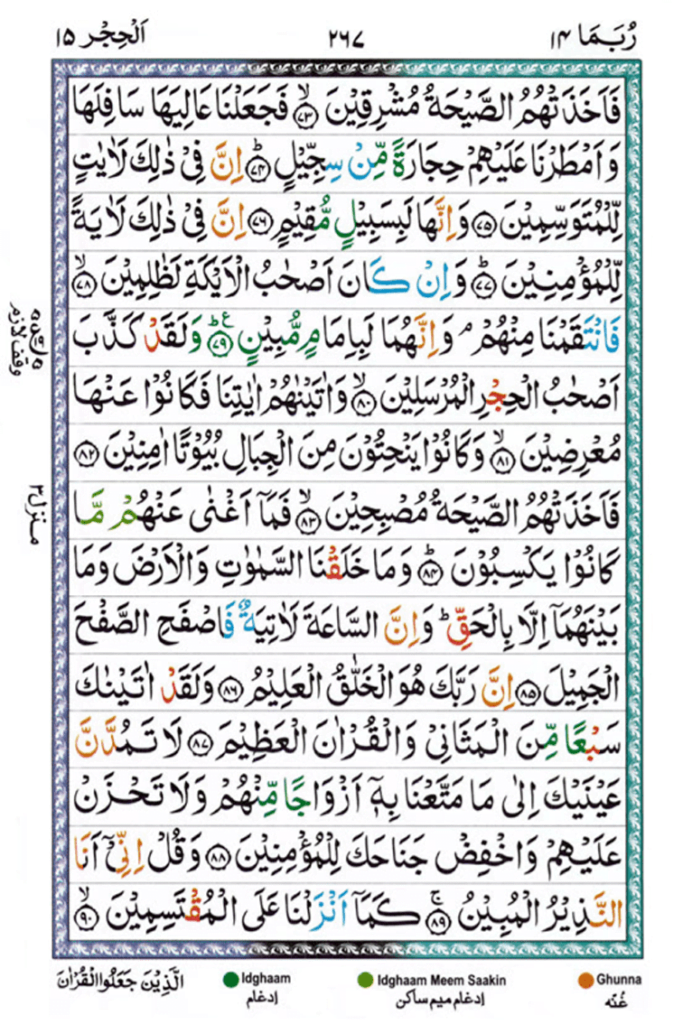 رُبَمَا ١٤
٢٦٧
اَلْحِجْر ١٥
فَاَخَذَتْهُمُ الصَّيْحَةُ مُشْرِقِيْنَ ۙ﴿۷۳﴾ فَجَعَلْنَا عَالِيَهَا سَافِلَهَا
وَاَمْطَرْنَا عَلَيْهِمْ حِجَارَةً مِّنْ سِجِّيْلٍ ؕ﴿۷۴﴾ اِنَّ فِيْ ذٰلِكَ لَاٰيٰتٍ
لِّلْمُتَوَسِّمِيْنَ ﴿۷۵﴾ وَاِنَّهَا لَبِسَبِيْلٍ مُّقِيْمٍ ﴿۷۶﴾ اِنَّ فِيْ ذٰلِكَ لَاٰيَةً
لِّلْمُؤْمِنِيْنَ ؕ﴿۷۷﴾ وَاِنْ كَانَ اَصْحٰبُ الْاَيْكَةِ لَظٰلِمِيْنَ ۙ﴿۷۸﴾
فَانْتَقَمْنَا مِنْهُمْ ۘ وَاِنَّهُمَا لَبِاِمَامٍ مُّبِيْنٍ ؕ﴿۷۹﴾ ع وَلَقَدْ كَذَّبَ
اَصْحٰبُ الْحِجْرِ الْمُرْسَلِيْنَ ۙ﴿۸۰﴾ وَاٰتَيْنٰهُمْ اٰيٰتِنَا فَكَانُوْا عَنْهَا
مُعْرِضِيْنَ ۙ﴿۸۱﴾ وَكَانُوْا يَنْحِتُوْنَ مِنَ الْجِبَالِ بُيُوْتًا اٰمِنِيْنَ ﴿۸۲﴾
فَاَخَذَتْهُمُ الصَّيْحَةُ مُصْبِحِيْنَ ۙ﴿۸۳﴾ فَمَاۤ اَغْنٰى عَنْهُمْ مَّا
كَانُوْا يَكْسِبُوْنَ ؕ﴿۸۴﴾ وَمَا خَلَقْنَا السَّمٰوٰتِ وَالْاَرْضَ وَمَا
بَيْنَهُمَاۤ اِلَّا بِالْحَقِّ ؕ وَاِنَّ السَّاعَةَ لَاٰتِيَةٌ فَاصْفَحِ الصَّفْحَ
الْجَمِيْلَ ﴿۸۵﴾ اِنَّ رَبَّكَ هُوَ الْخَلّٰقُ الْعَلِيْمُ ﴿۸۶﴾ وَلَقَدْ اٰتَيْنٰكَ
سَبْعًا مِّنَ الْمَثَانِيْ وَالْقُرْاٰنَ الْعَظِيْمَ ﴿۸۷﴾ لَا تَمُدَّنَّ
عَيْنَيْكَ اِلٰى مَا مَتَّعْنَا بِهٖۤ اَزْوَاجًا مِّنْهُمْ وَلَا تَحْزَنْ
عَلَيْهِمْ وَاخْفِضْ جَنَاحَكَ لِلْمُؤْمِنِيْنَ ﴿۸۸﴾ وَقُلْ اِنِّيْۤ اَنَا
النَّذِيْرُ الْمُبِيْنُ ۚ﴿۸۹﴾ كَمَاۤ اَنْزَلْنَا عَلَى الْمُقْتَسِمِيْنَ ۙ﴿۹۰﴾
وقف لازم
منزل ۳
الَّذِيْنَ جَعَلُوا الْقُرْاٰنَ
Idghaam
ادغام
Idghaam Meem Saakin
ادغام میم ساکن
Ghunna
غُنّه